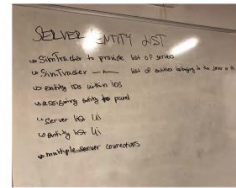 SERVER ENTITY LIST
SimTracker to provide list of servers
SimTracker list of entities belonging to the server
entity IDs within
assigning entity to panel
server list UI
entity list UI
multiple server connectors